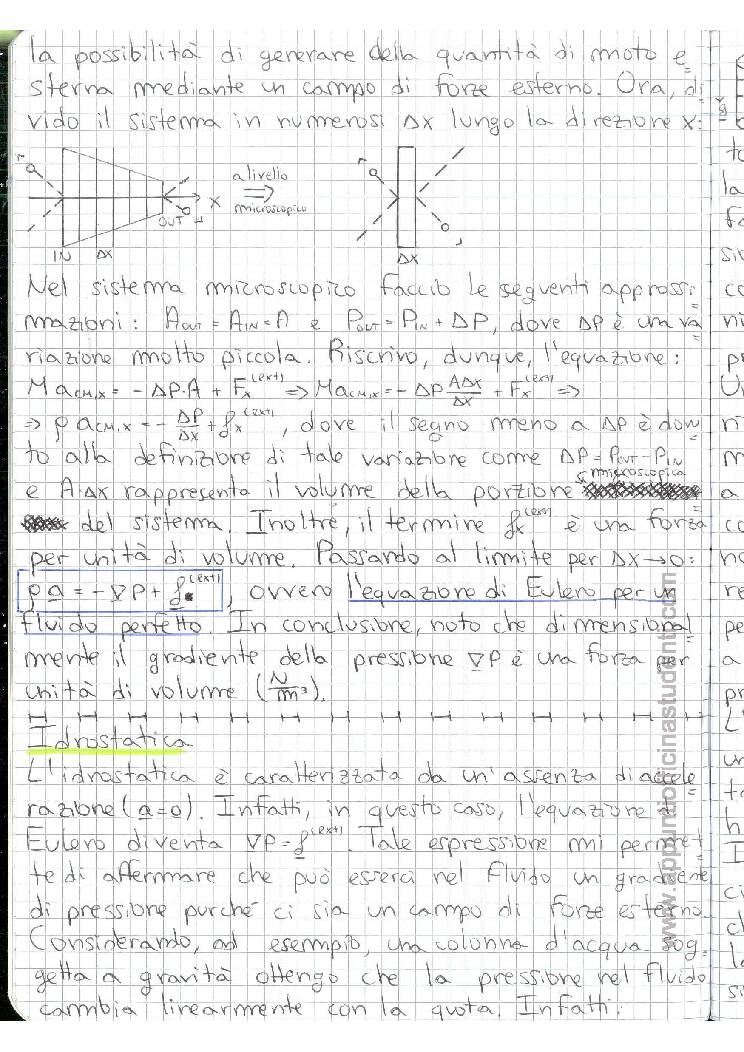 la possibilità di generare della quantità di moto e=
sterna mediante un campo di forze esterno. Ora, di
vido il sistema in numerosi Δx lungo la direzione x:
a livello
microscopico
⇒
x
IN
Δx
OUT
Δx
Nel sistema microscopico faccio le seguenti appross
mazioni: A_OUT = A_IN = A e P_OUT = P_IN + ΔP, dove ΔP è una va
riazione molto piccola. Riscrivo, dunque, l'equazione:
Ma_CM,x = -ΔP·A + F_x^(ext) ⇒ Ma_CM,x = -ΔP AΔx/Δx + F_x^(ext) ⇒
⇒ ρ a_CM,x = - ΔP/Δx + f_x^(ext), dove il segno meno a ΔP è dovu
to alla definizione di tale variazione come ΔP = P_OUT - P_IN
microscopica
e A·Δx rappresenta il volume della porzione
del sistema. Inoltre, il termine f_x^(ext) è una forza
per unità di volume. Passando al limite per Δx→0:
ρa = -∇P + f^(ext), ovvero l'equazione di Eulero per un
fluido perfetto. In conclusione, noto che dimensional
mente il gradiente della pressione ∇P è una forza per
unità di volume (N/m³).
Idrostatica
L'idrostatica è caratterizzata da un'assenza di accele
razione (a=0). Infatti, in questo caso, l'equazione di
Eulero diventa ∇P = f^(ext). Tale espressione mi permet
te di affermare che può esserci nel fluido un gradiente
di pressione purché ci sia un campo di forze esterno.
Considerando, ad esempio, una colonna d'acqua sog=
getta a gravità ottengo che la pressione nel fluido
cambia linearmente con la quota. Infatti:
www.appuntiofficinastudenti.com